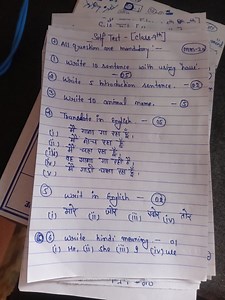 Self Test - [Class 9th]
All question are mandatory:-
① Write 10 sentence with using have. -
② Write 5 Introduction sentence. -
③ Write 10 animal name. - 5
④ Translate in English -
(i) मैं गाना गा रहा हूँ।
(ii) मैं नाच रहा हूँ।
(iii) मैं चल रहा हूँ।
(iv) वह गाना गा रहा है।
(v) मैं गाड़ी चला रहा हूँ।
⑤ Writ in English -
(i) मोर (ii) (iii) (iv)
⑥ Write hindi meaning - 01
(i) He, (ii) She (iii) I (iv) we